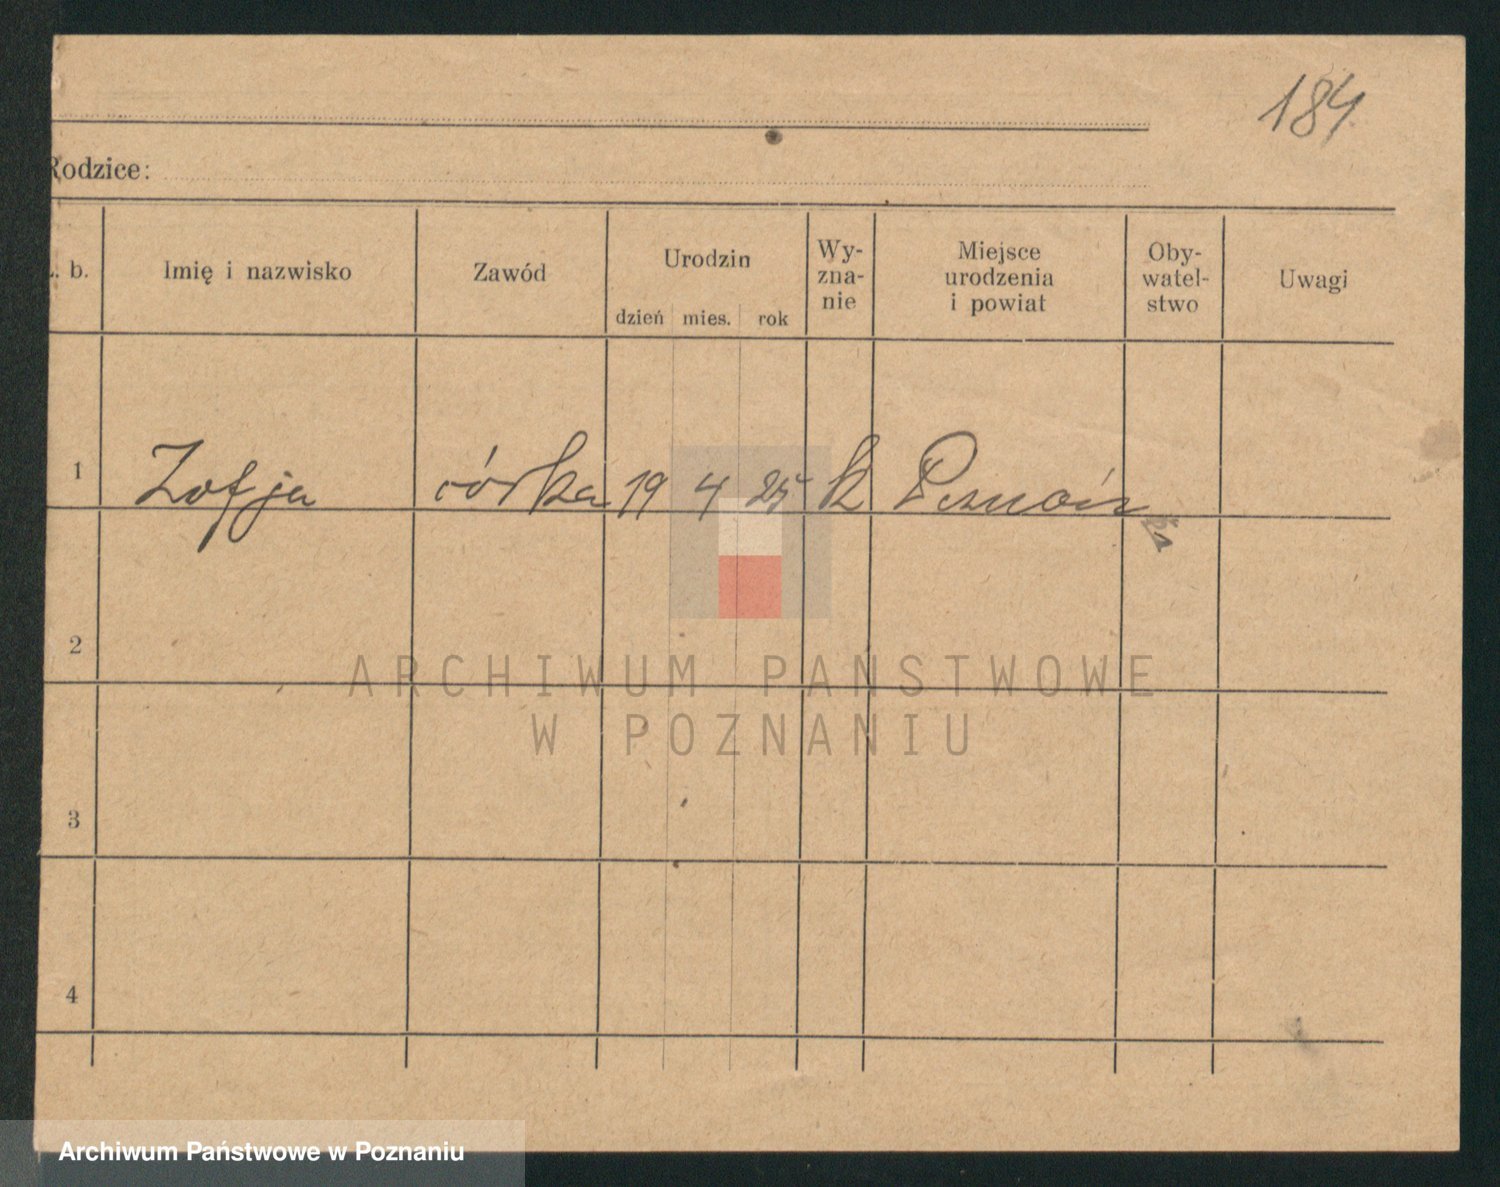 184
Rodzice:
L. b. Imię i nazwisko Zawód Urodzin dzień mies. rok Wy-zna-nie Miejsce urodzenia i powiat Oby-watel-stwo Uwagi
1 Zofja córka 19 4 25 k Poznań
2
ARCHIWUM PAŃSTWOWE
W POZNANIU
3
4
Archiwum Państwowe w Poznaniu